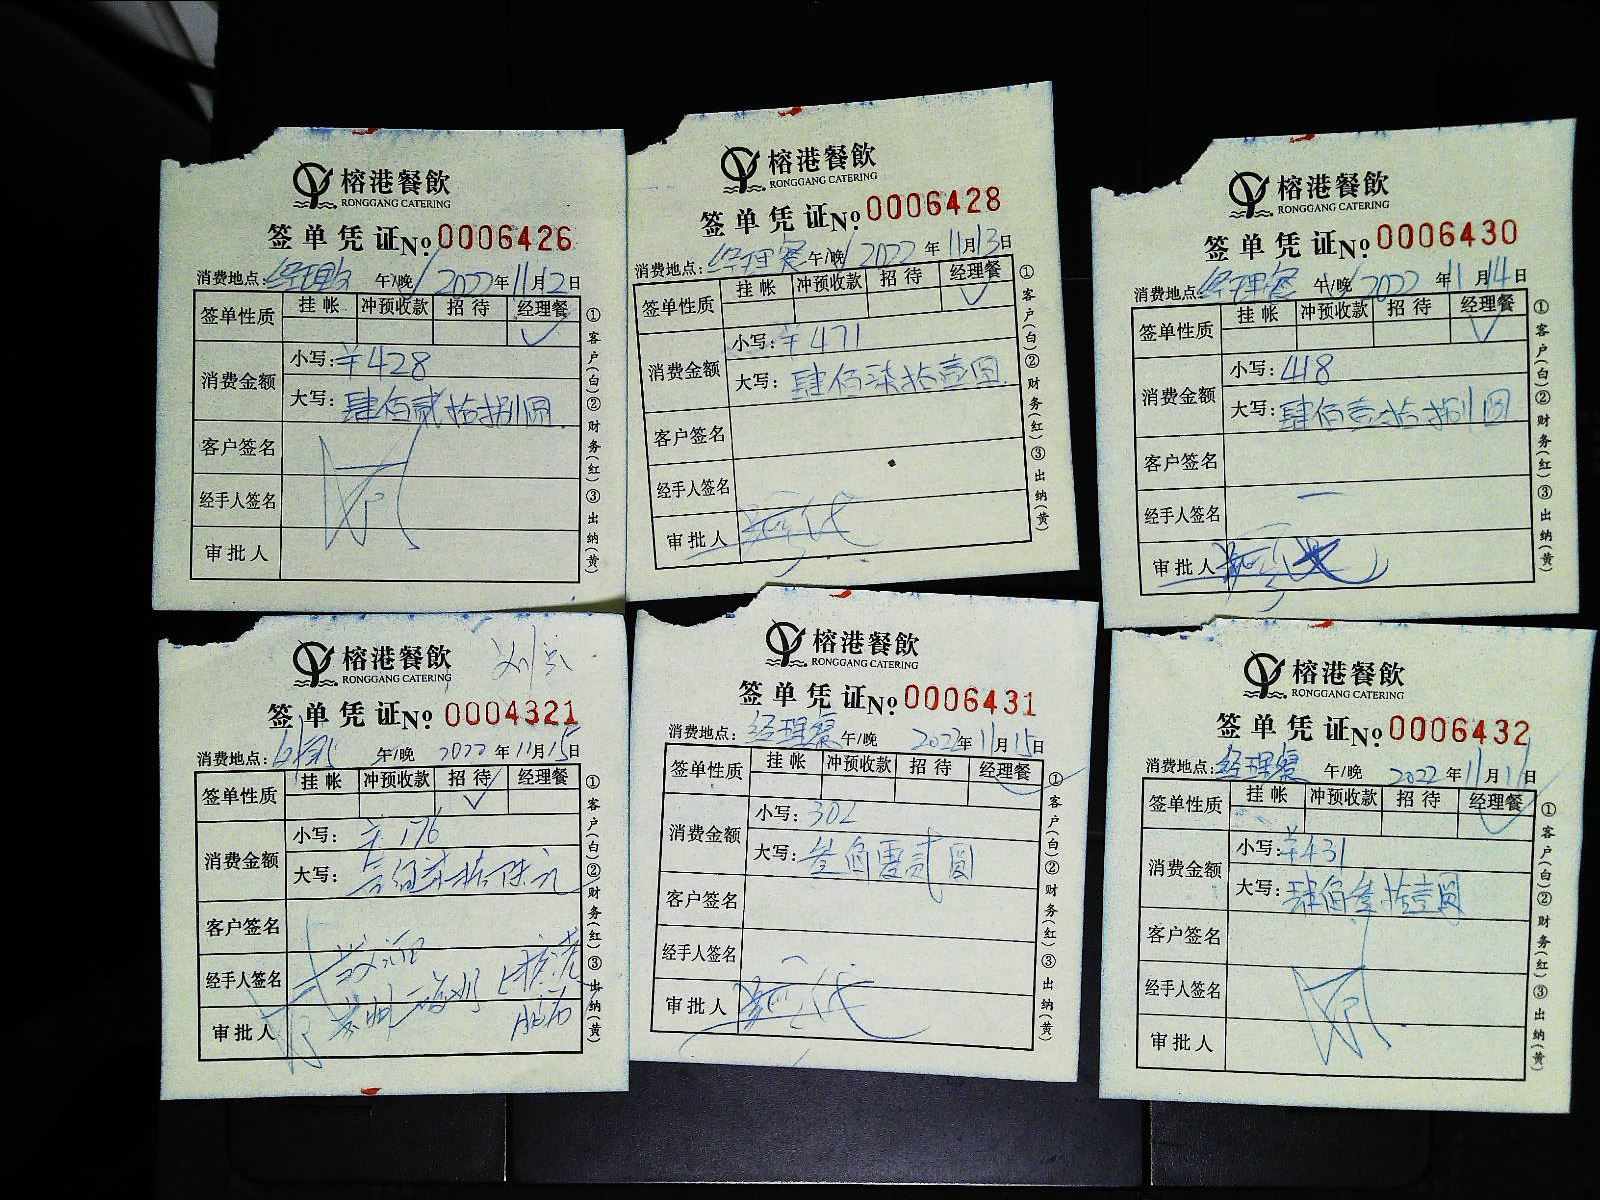 榕港餐飲
RONGGANG CATERING
签单凭证No. 0006426
消费地点: 午/晚 2022年11月12日
签单性质 挂帐 冲预收款 招待 经理餐
消费金额 小写: ¥428
大写: 肆佰贰拾捌圆
客户签名
经手人签名
审批人
①客户(白)②财务(红)③出纳(黄)
榕港餐飲
RONGGANG CATERING
签单凭证No. 0006428
消费地点: 经理餐 午/晚 2022年11月13日
签单性质 挂帐 冲预收款 招待 经理餐
消费金额 小写: ¥471
大写: 肆佰柒拾壹圆
客户签名
经手人签名
审批人
①客户(白)②财务(红)③出纳(黄)
榕港餐飲
RONGGANG CATERING
签单凭证No. 0006430
消费地点: 经理餐 午/晚 2022年11月14日
签单性质 挂帐 冲预收款 招待 经理餐
消费金额 小写: 418
大写: 肆佰壹拾捌圆
客户签名
经手人签名
审批人
①客户(白)②财务(红)③出纳(黄)
榕港餐飲
RONGGANG CATERING
签单凭证No. 0004321
消费地点: 午/晚 2022年11月15日
签单性质 挂帐 冲预收款 招待 经理餐
消费金额 小写: ¥176
大写: 壹佰柒拾陆元
客户签名
经手人签名
审批人
①客户(白)②财务(红)③出纳(黄)
榕港餐飲
RONGGANG CATERING
签单凭证No. 0006431
消费地点: 经理餐 午/晚 2022年11月15日
签单性质 挂帐 冲预收款 招待 经理餐
消费金额 小写: 302
大写: 叁佰零贰圆
客户签名
经手人签名
审批人
①客户(白)②财务(红)③出纳(黄)
榕港餐飲
RONGGANG CATERING
签单凭证No. 0006432
消费地点: 经理餐 午/晚 2022年11月11日
签单性质 挂帐 冲预收款 招待 经理餐
消费金额 小写: ¥431
大写: 肆佰叁拾壹圆
客户签名
经手人签名
审批人
①客户(白)②财务(红)③出纳(黄)